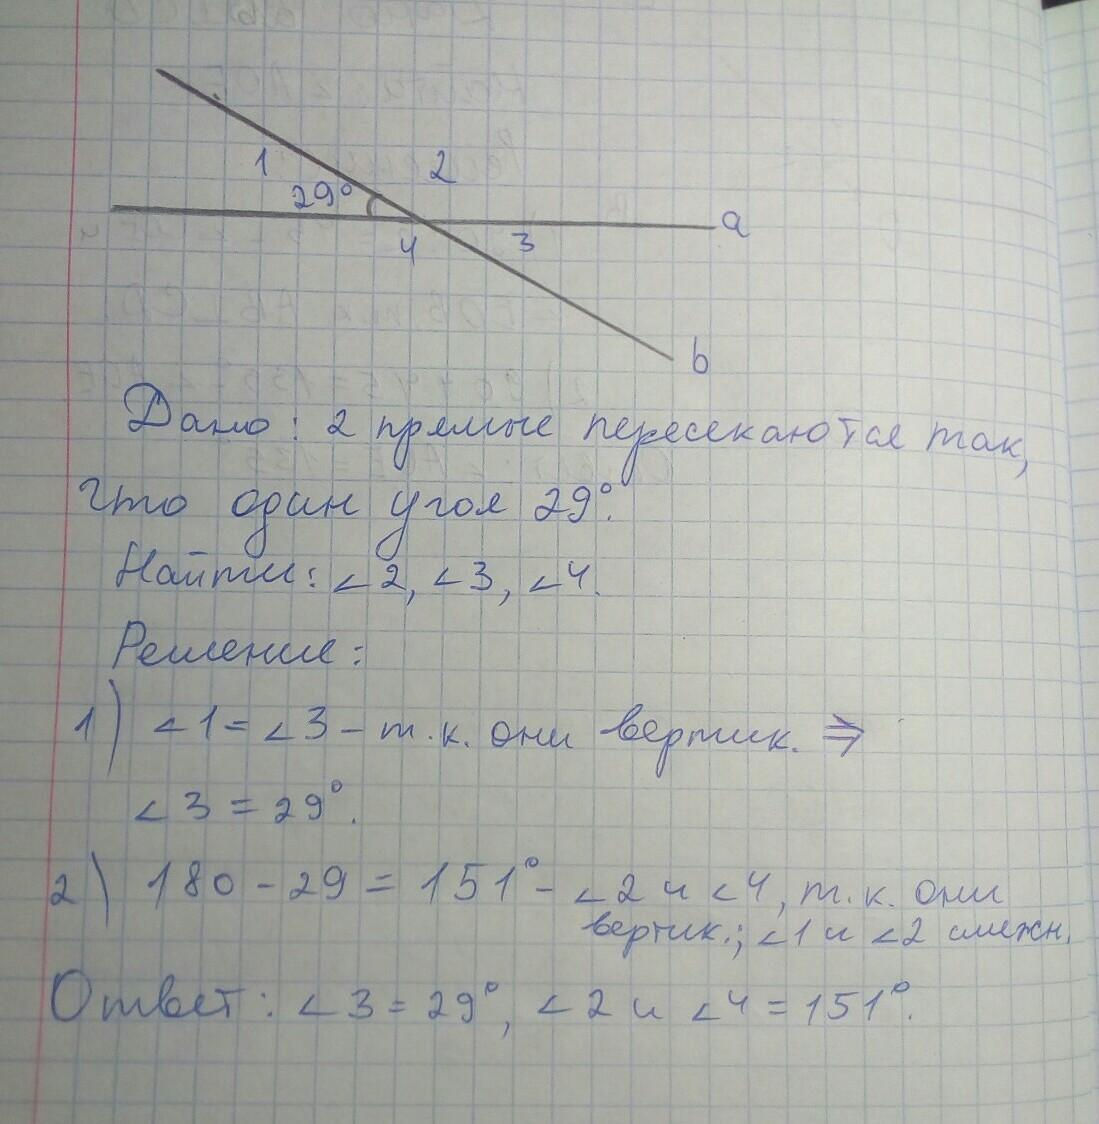 1 2
29°
4 3 a
b
Дано: 2 прямые пересекаются так,
что один угол 29°.
Найти: ∠2, ∠3, ∠4.
Решение:
1) ∠1 = ∠3 – т.к. они вертик. ⇒
∠3 = 29°.
2) 180 - 29 = 151° - ∠2 и ∠4, т.к. они
вертик.; ∠1 и ∠2 смежн.
Ответ: ∠3 = 29°, ∠2 и ∠4 = 151°.